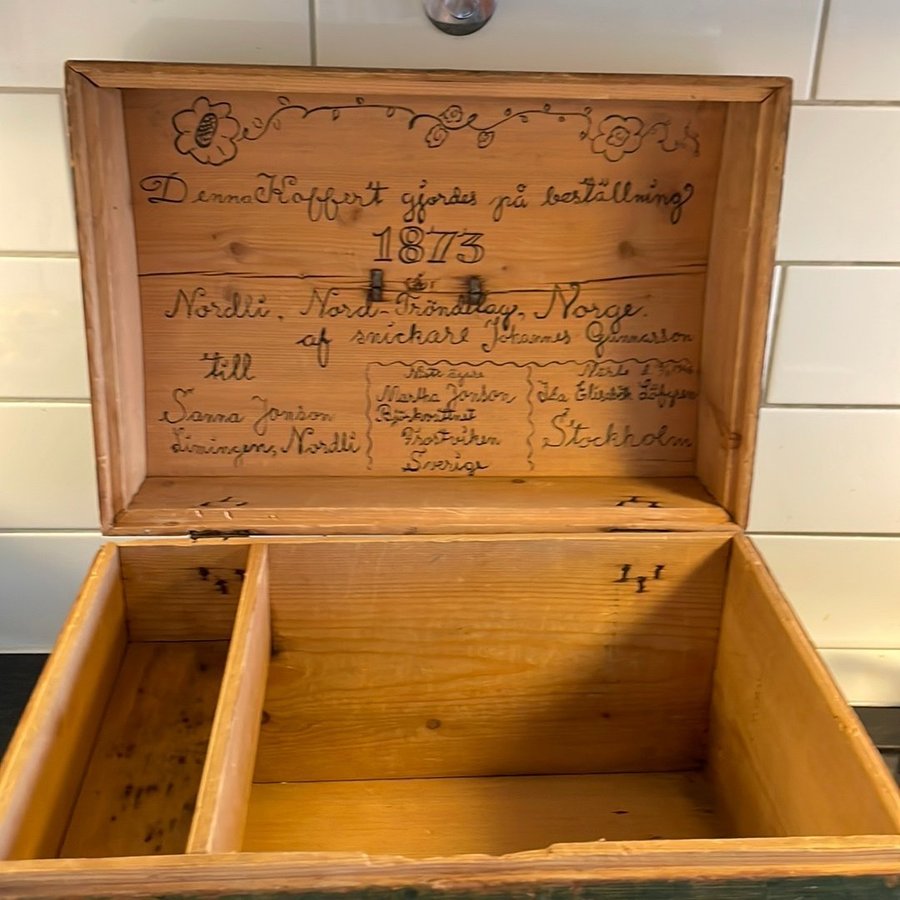 Denna Koffert gjordes på beställning
1873
för
Nordli, Nord-Tröndelag, Norge.
af snickare Johannes Gunnarson
till
Sanna Jonson
Limingen, Nordli
Näste ägare
Martha Jonson
Björkvattnet
Frostviken
Sverige
Ida Elisabök Löfgren
Stockholm